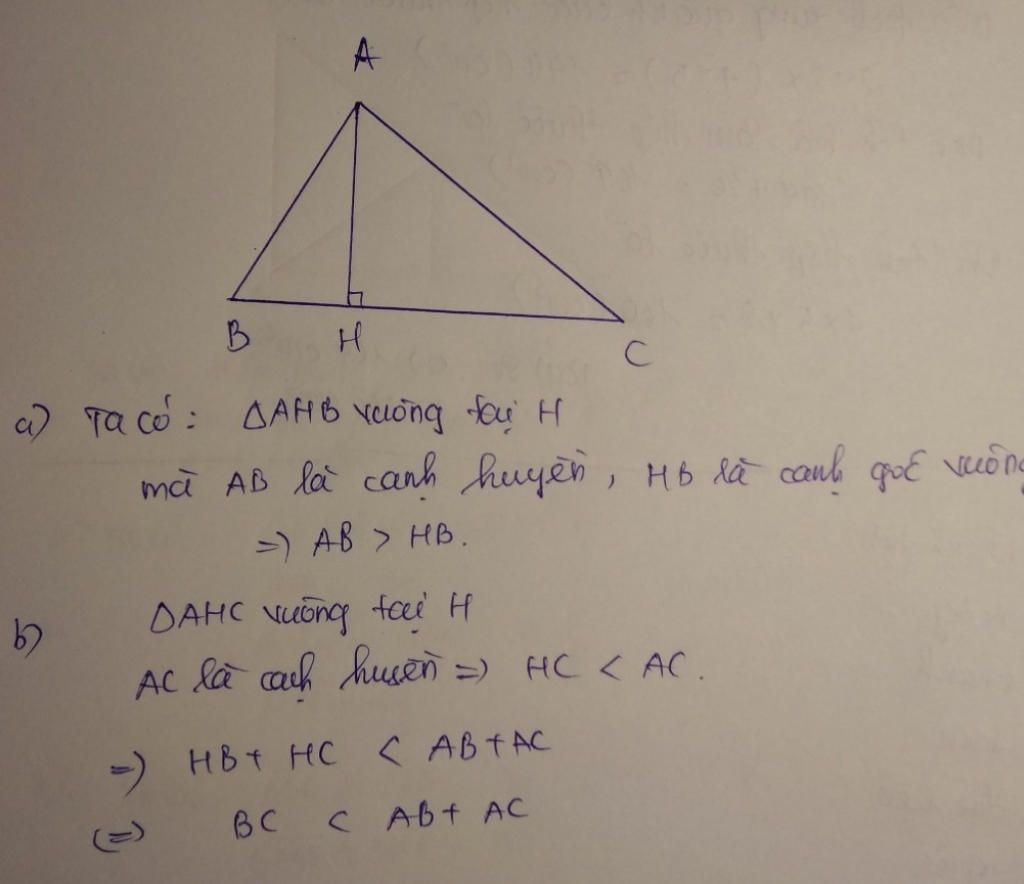 A
B H C
a) Ta có: ΔAHB vuông tại H
mà AB là cạnh huyền, HB là cạnh góc vuông
=> AB > HB.
b) ΔAHC vuông tại H
AC là cạnh huyền => HC < AC.
=> HB + HC < AB + AC
<=> BC < AB + AC